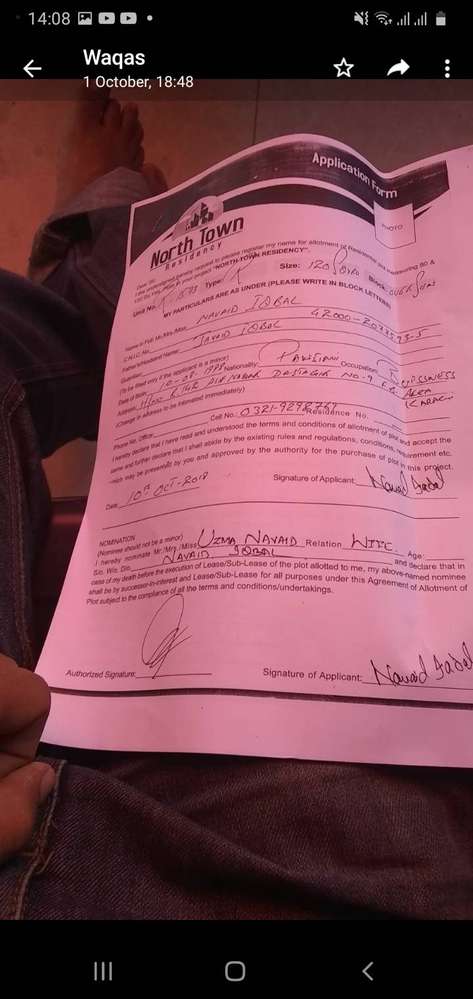 14:08
Waqas
1 October, 18:48
Application Form
PHOTO
North Town
Residency
Dear Sir,
I the undersigned hereby request to please register my name for allotment of Residential measuring 80 &
in your project "NORTH TOWN RESIDENCY".
Unit No. Type: Size: 120 Block
MY PARTICULARS ARE AS UNDER (PLEASE WRITE IN BLOCK LETTER)
Name in Full: Mr./Mrs./Miss NAVAID IQBAL
C.N.I.C. No. 42000-
Father's/Husband Name: JAVAID IQBAL
Guardian:
(To be filled only if the applicant is a minor)
Date of Birth: Nationality: Occupation: BUSSINESS
Address: DASTAGIR NO-9 F.B. AREA
(Change in address to be intimated immediately) KARACHI
Phone No. Office: Cell No.: Residence No.
I hereby declare that I have read and understood the terms and conditions of allotment of plot and accept the
same and further declare that I shall abide by the existing rules and regulations, conditions, requirement etc.
which may be prescribed by you and approved by the authority for the purchase of plot in this project.
Date: 10th OCT-2018 Signature of Applicant: Navaid Iqbal
NOMINATION
(Nominee should not be a minor)
I hereby nominate Mr./Mrs./Miss UZMA NAVAID Relation WIFE Age:
S/o. W/o. D/o. NAVAID IQBAL and declare that in
case of my death before the execution of Lease/Sub-Lease of the plot allotted to me, my above-named nominee
shall be by successor-in-interest and Lease/Sub-Lease for all purposes under this Agreement of Allotment of
Plot subject to the compliance of all the terms and conditions/undertakings.
Authorized Signature: Signature of Applicant: Navaid Iqbal